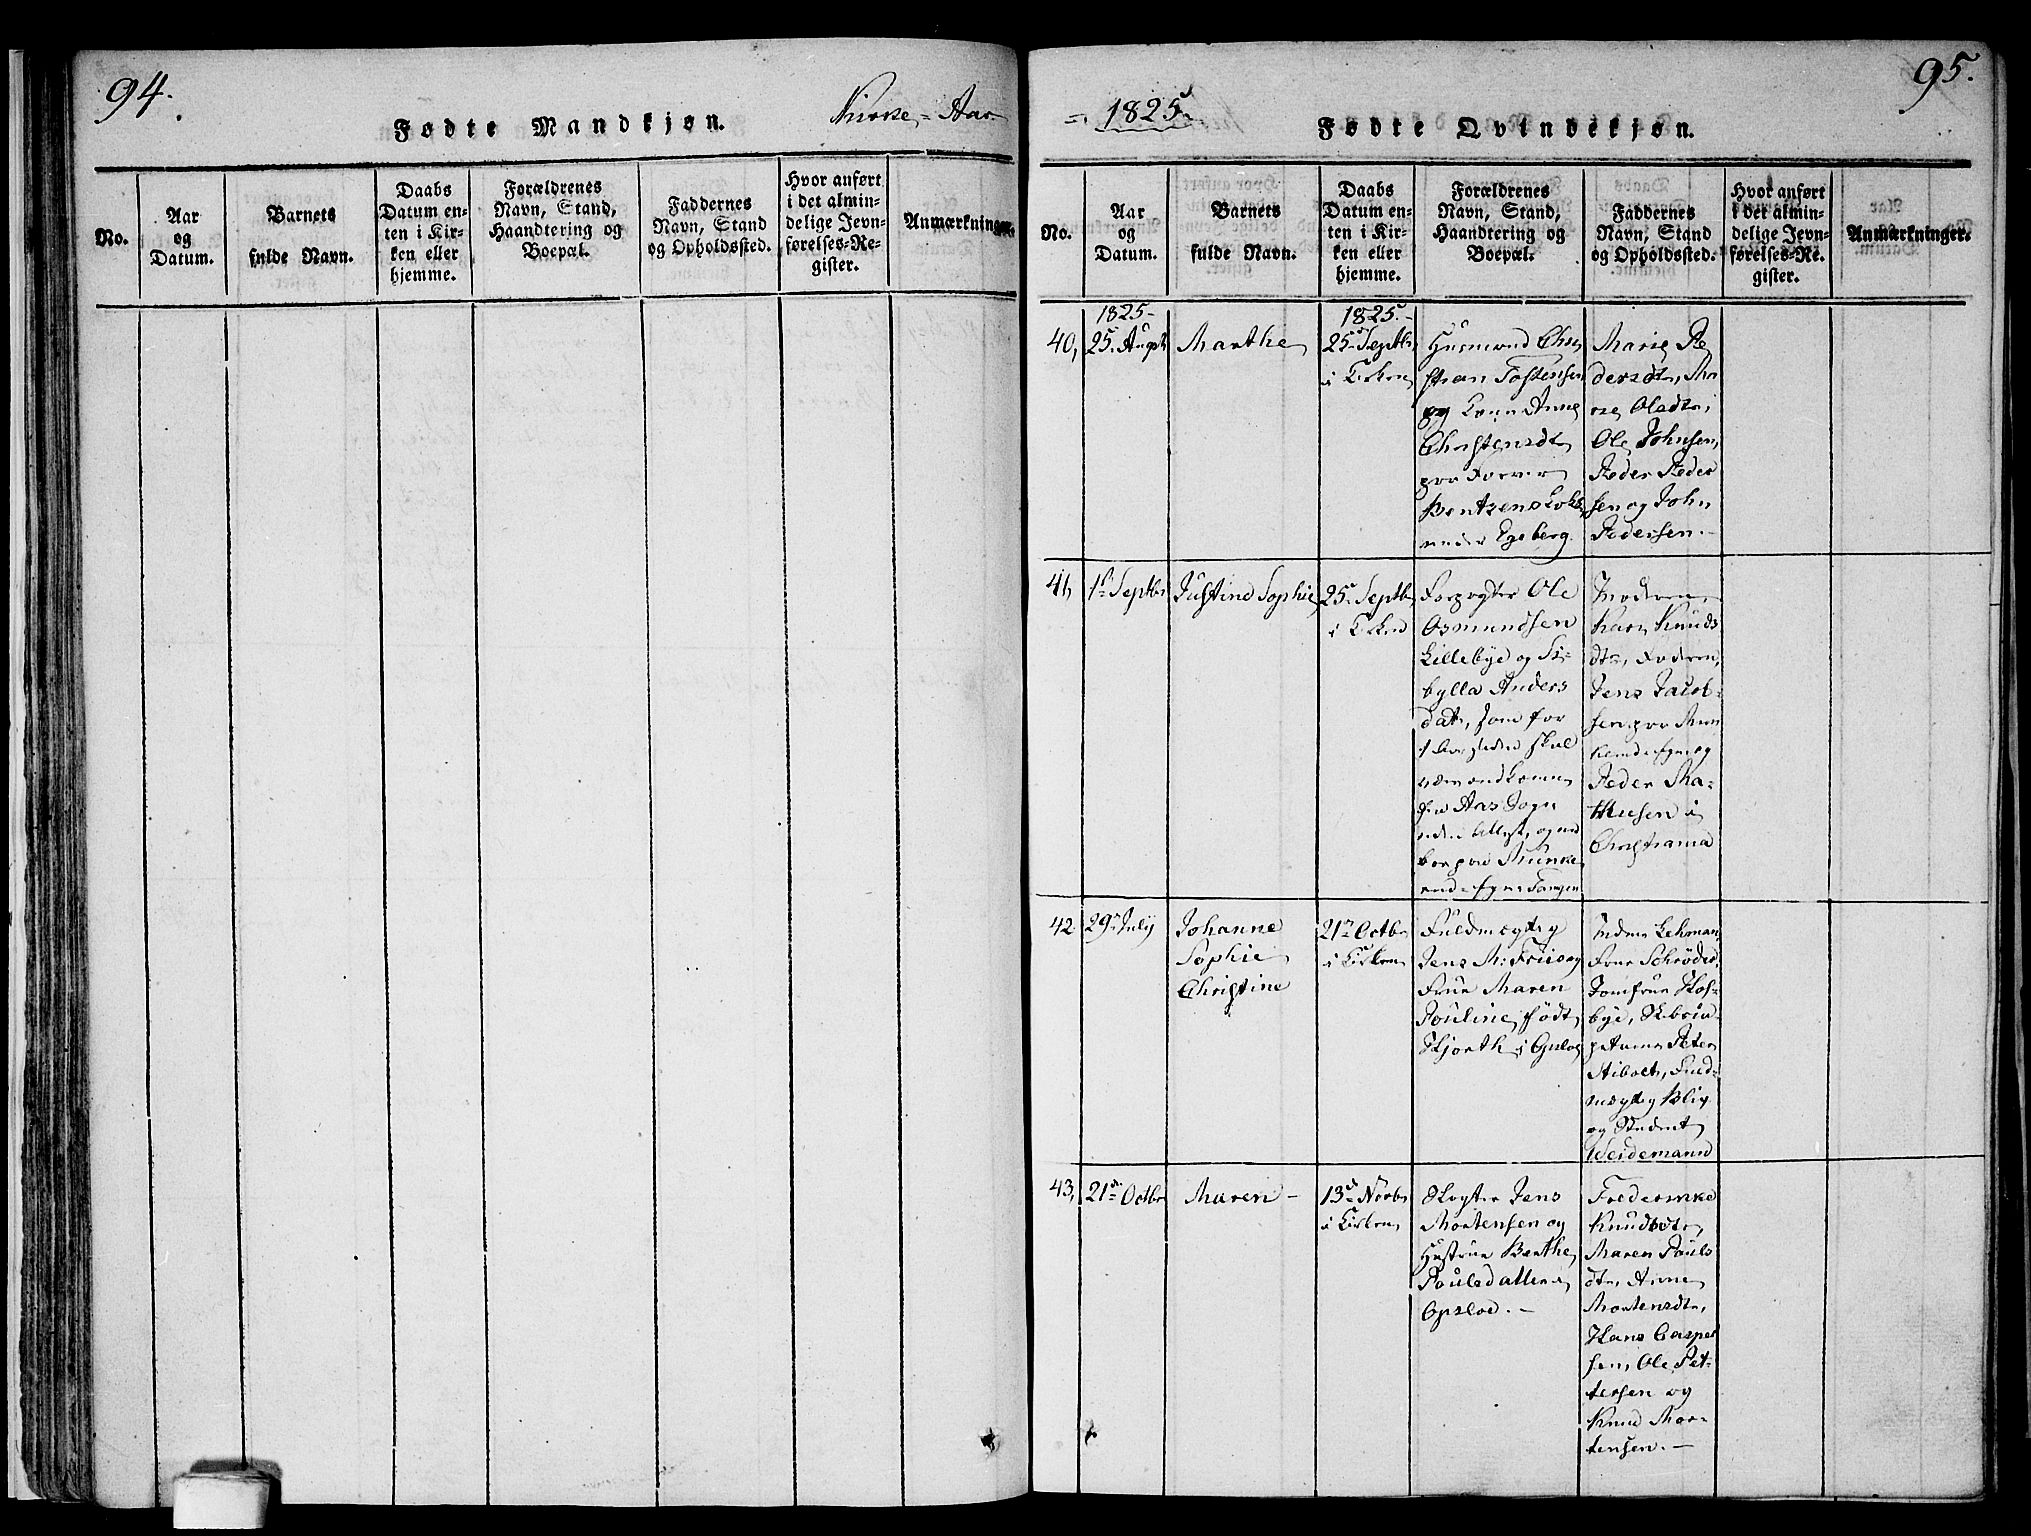 94.
Fødte Mandkjøn.
Kirke-Aar
No.
Aar
og
Datum.
Barnets
fulde Navn.
Daabs
Datum en-
ten i Kir-
ken eller
hjemme.
Forældrenes
Navn, Stand,
Haandtering og
Boepæl.
Faddernes
Navn, Stand
og Opholdssted.
Hvor anført
i det almin-
delige Jevn-
førelses-Re-
gister.
Anmærkninger.
= 1825.
Fødte Qvindekjøn.
95.
No.
Aar
og
Datum.
Barnets
fulde Navn.
Daabs
Datum en-
ten i Kir-
ken eller
hjemme.
Forældrenes
Navn, Stand,
Haandtering og
Boepæl.
Faddernes
Navn, Stand
og Opholdssted.
Hvor anført
i det almin-
delige Jevn-
førelses-Re-
gister.
Anmærkninger.
40,
1825-
25. Augst
Marthe
1825.-
25 Septbr
i Kirken
Husmand Chri
stian Tostensen
og Kone Anne
Christensdtr
paa
Bentsens Løkke
under Egeberg.
Marie Pe
dersdtr, Ma
rie Olsdtr,
Ole Johnsen,
Peder Peder
sen og John
Pedersen.-
41,
1ste Septbr
Justine Sophie
25 Septbr
i Kirken
Forpagter Ole
Osmundsen
Lillebye og Si-
bylla Anders
datr, som for
skal
være ankommen
fra Aas Sogn
og nu
boer paa Munke
Tangen
Moderen
Karn Knuds
dtr, Faderen,
Jens Jacob-
sen paa Mun
og
Peder Ma-
thiesen i
Christiania
42.
29. July
Johanne
Sophie
Christine
21. Octbr
i Kirken
Fuldmægtig
Jens M: Friis og
Frue Maren
Pouline, født
Hjorth i Opsloe
Madme Lehman,
Frue Schrøder,
Jomfrue Hos-
bye, Skibscap-
Peter
Fuld-
mægtig Blix
og Student
Weidemann
43,
21. Octbr
Maren -
13de Novbr
i Kirken
Slagter Jens
Mortensen og
Hustrue Berthe
Poulsdatter i
Opsloe. -
Frederikke
Knudsdtr,
Maren Pouls
dtr, Anne
Mortensdtr,
Hans Casper
sen, Ole Pet-
tersen og
Knud Mor-
tensen. -